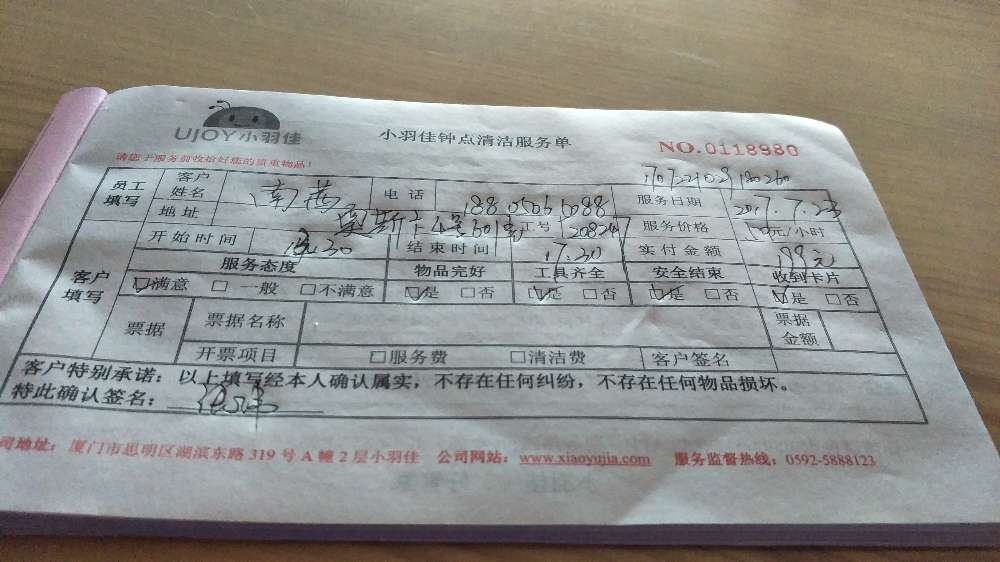 UJOY小羽佳
小羽佳钟点清洁服务单
NO.0118980
请您于服务前收给好您的贵重物品!
员工填写 客户姓名 南燕 电话 服务日期 2017.7.23
地址 601 工号 20824 服务价格 元/小时
开始时间 结束时间 17.30 实付金额 199元
客户填写 服务态度 物品完好 工具齐全 安全结束 收到卡片
☑满意 □一般 □不满意 ☑是 □否 ☑是 □否 ☑是 □否 ☑是 □否
票据 票据名称 票据金额
开票项目 □服务费 □清洁费 客户签名
客户特别承诺:以上填写经本人确认属实,不存在任何纠纷,不存在任何物品损坏。
特此确认签名:
司地址:厦门市思明区湖滨东路 319 号 A 幢 2 层小羽佳 公司网站:www.xiaoyujia.com 服务监督热线:0592-5888123